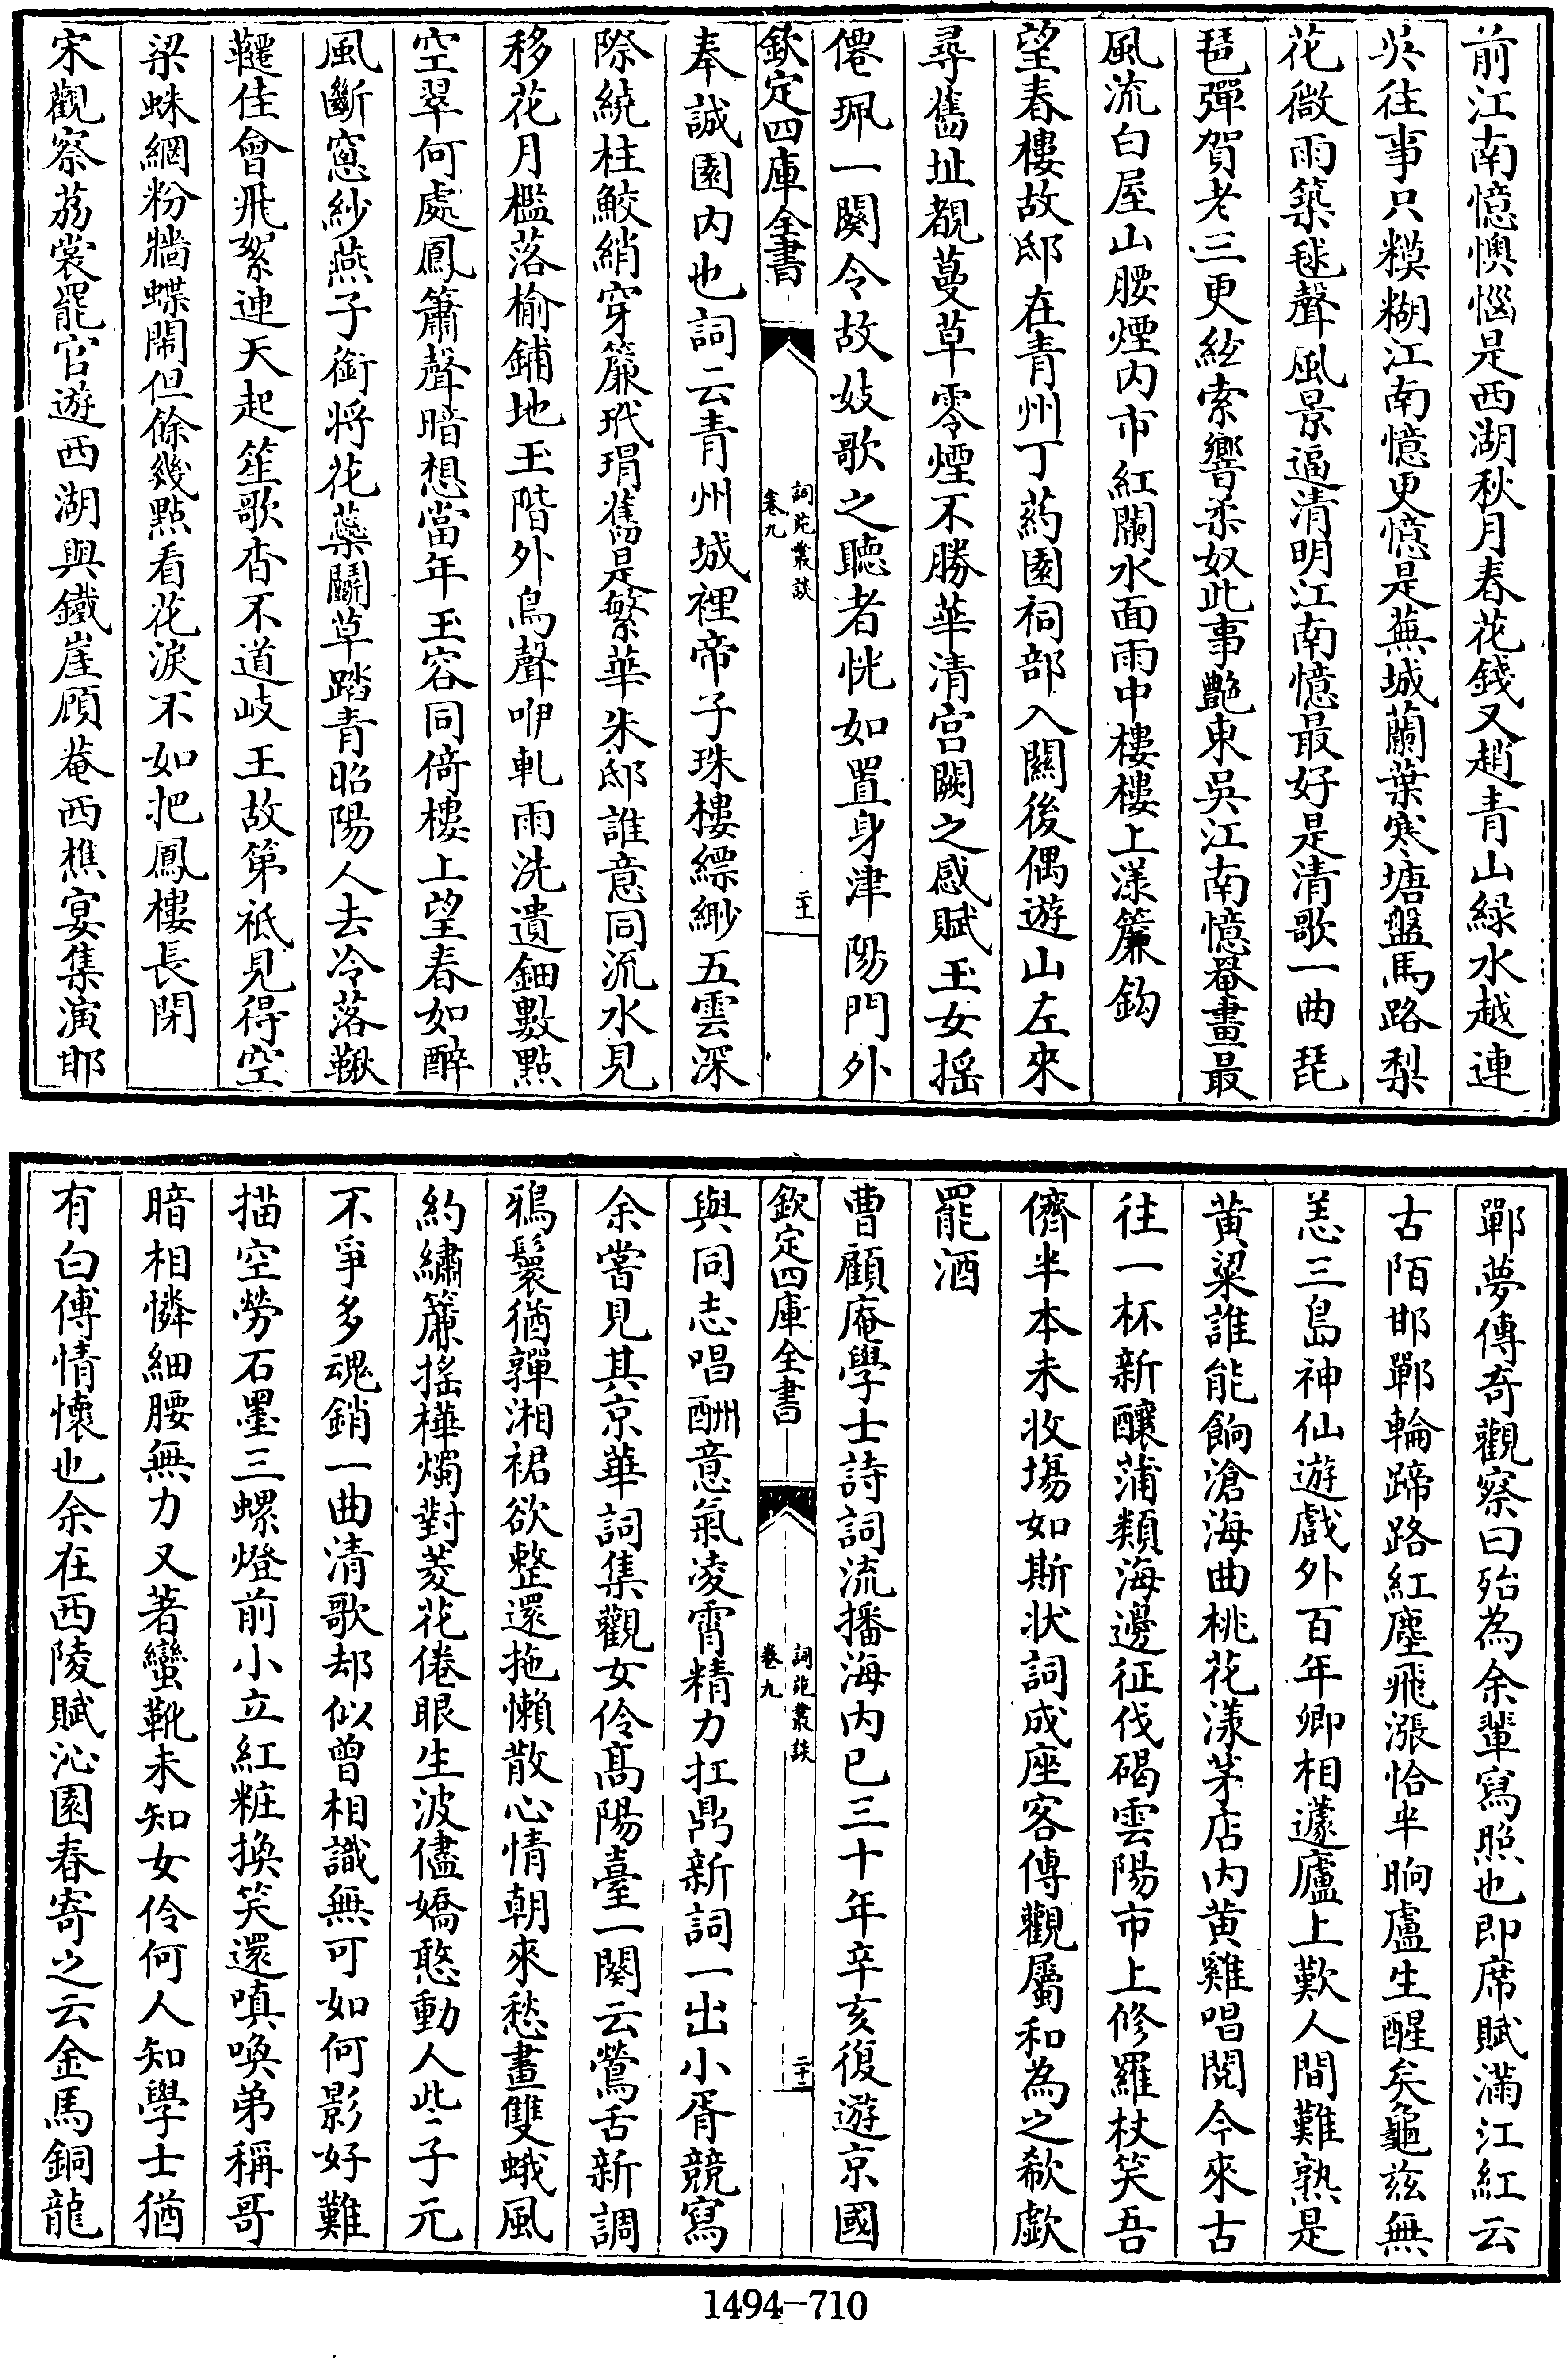 前江南憶懊惱是西湖秋月春花錢又趙青山緑水越連
吳往事只糢糊江南憶更憶是蕪城蘭葉寒塘盤馬路梨
花微雨築毬聲風景逼清明江南憶最好是清歌一曲琵
琶彈賀老三更絃索響柔奴此事艷東吳江南憶罨畫最
風流白屋山腰煙内市紅闌水面雨中樓樓上漾簾鈎
望春樓故邸在青州丁葯園祠部入關後偶遊山左來
尋舊址覩蔓草零煙不勝華清宮闕之感賦玉女搖
僊珮一闋令故妓歌之聽者恍如置身津陽門外
欽定四庫全書
詞苑叢談
卷九
二十一
奉誠園内也詞云青州城裡帝子珠樓縹緲五雲深
際繞柱鮫綃穿簾玳瑁舊是繁華朱邸誰意同流水見
移花月檻落榆鋪地玉階外鳥聲咿軋雨洗遺鈿數點
空翠何處鳳簫聲暗想當年玉容同倚樓上望春如醉
風斷窓紗燕子銜將花藥鬭草踏青昭陽人去冷落鞦
韆佳會飛絮連天起笙歌杳不道岐王故第祇見得空
梁蛛網粉牆蝶閙但餘幾點看花淚不如把鳳樓長閉
宋觀察荔裳罷官遊西湖與鐵崖顧菴西樵宴集演邯
鄲夢傳奇觀察曰殆為余輩寫照也即席賦滿江紅云
古陌邯鄲輪蹄路紅塵飛漲恰半晌盧生醒矣龜兹無
恙三島神仙遊戲外百年卿相蘧廬上歎人間難熟是
黄粱誰能餉滄海曲桃花漾茅店内黄雞唱閱今來古
往一杯新釀蒲類海邊征伐碣雲陽市上修羅杖笑吾
儕半本未收場如斯状詞成座客傳觀屬和為之欷歔
罷酒
曹顧庵學士詩詞流播海内已三十年辛亥復遊京國
欽定四庫全書
詞苑叢談
卷九
二十二
與同志唱酬意氣凌霄精力扛鼎新詞一出小胥競寫
余嘗見其京華詞集觀女伶髙陽臺一闋云鶯舌新調
鴉鬟猶嚲湘裙欲整還拖懶散心情朝來愁畫雙蛾風
約繡簾搖樺燭對菱花倦眼生波儘嬌憨動人些子元
不爭多魂銷一曲清歌却似曾相識無可如何影好難
描空勞石墨三螺燈前小立紅粧換笑還嗔喚弟稱哥
暗相憐細腰無力又著蠻靴未知女伶何人知學士猶
有白傅情懷也余在西陵賦沁園春寄之云金馬銅龍
1494-710